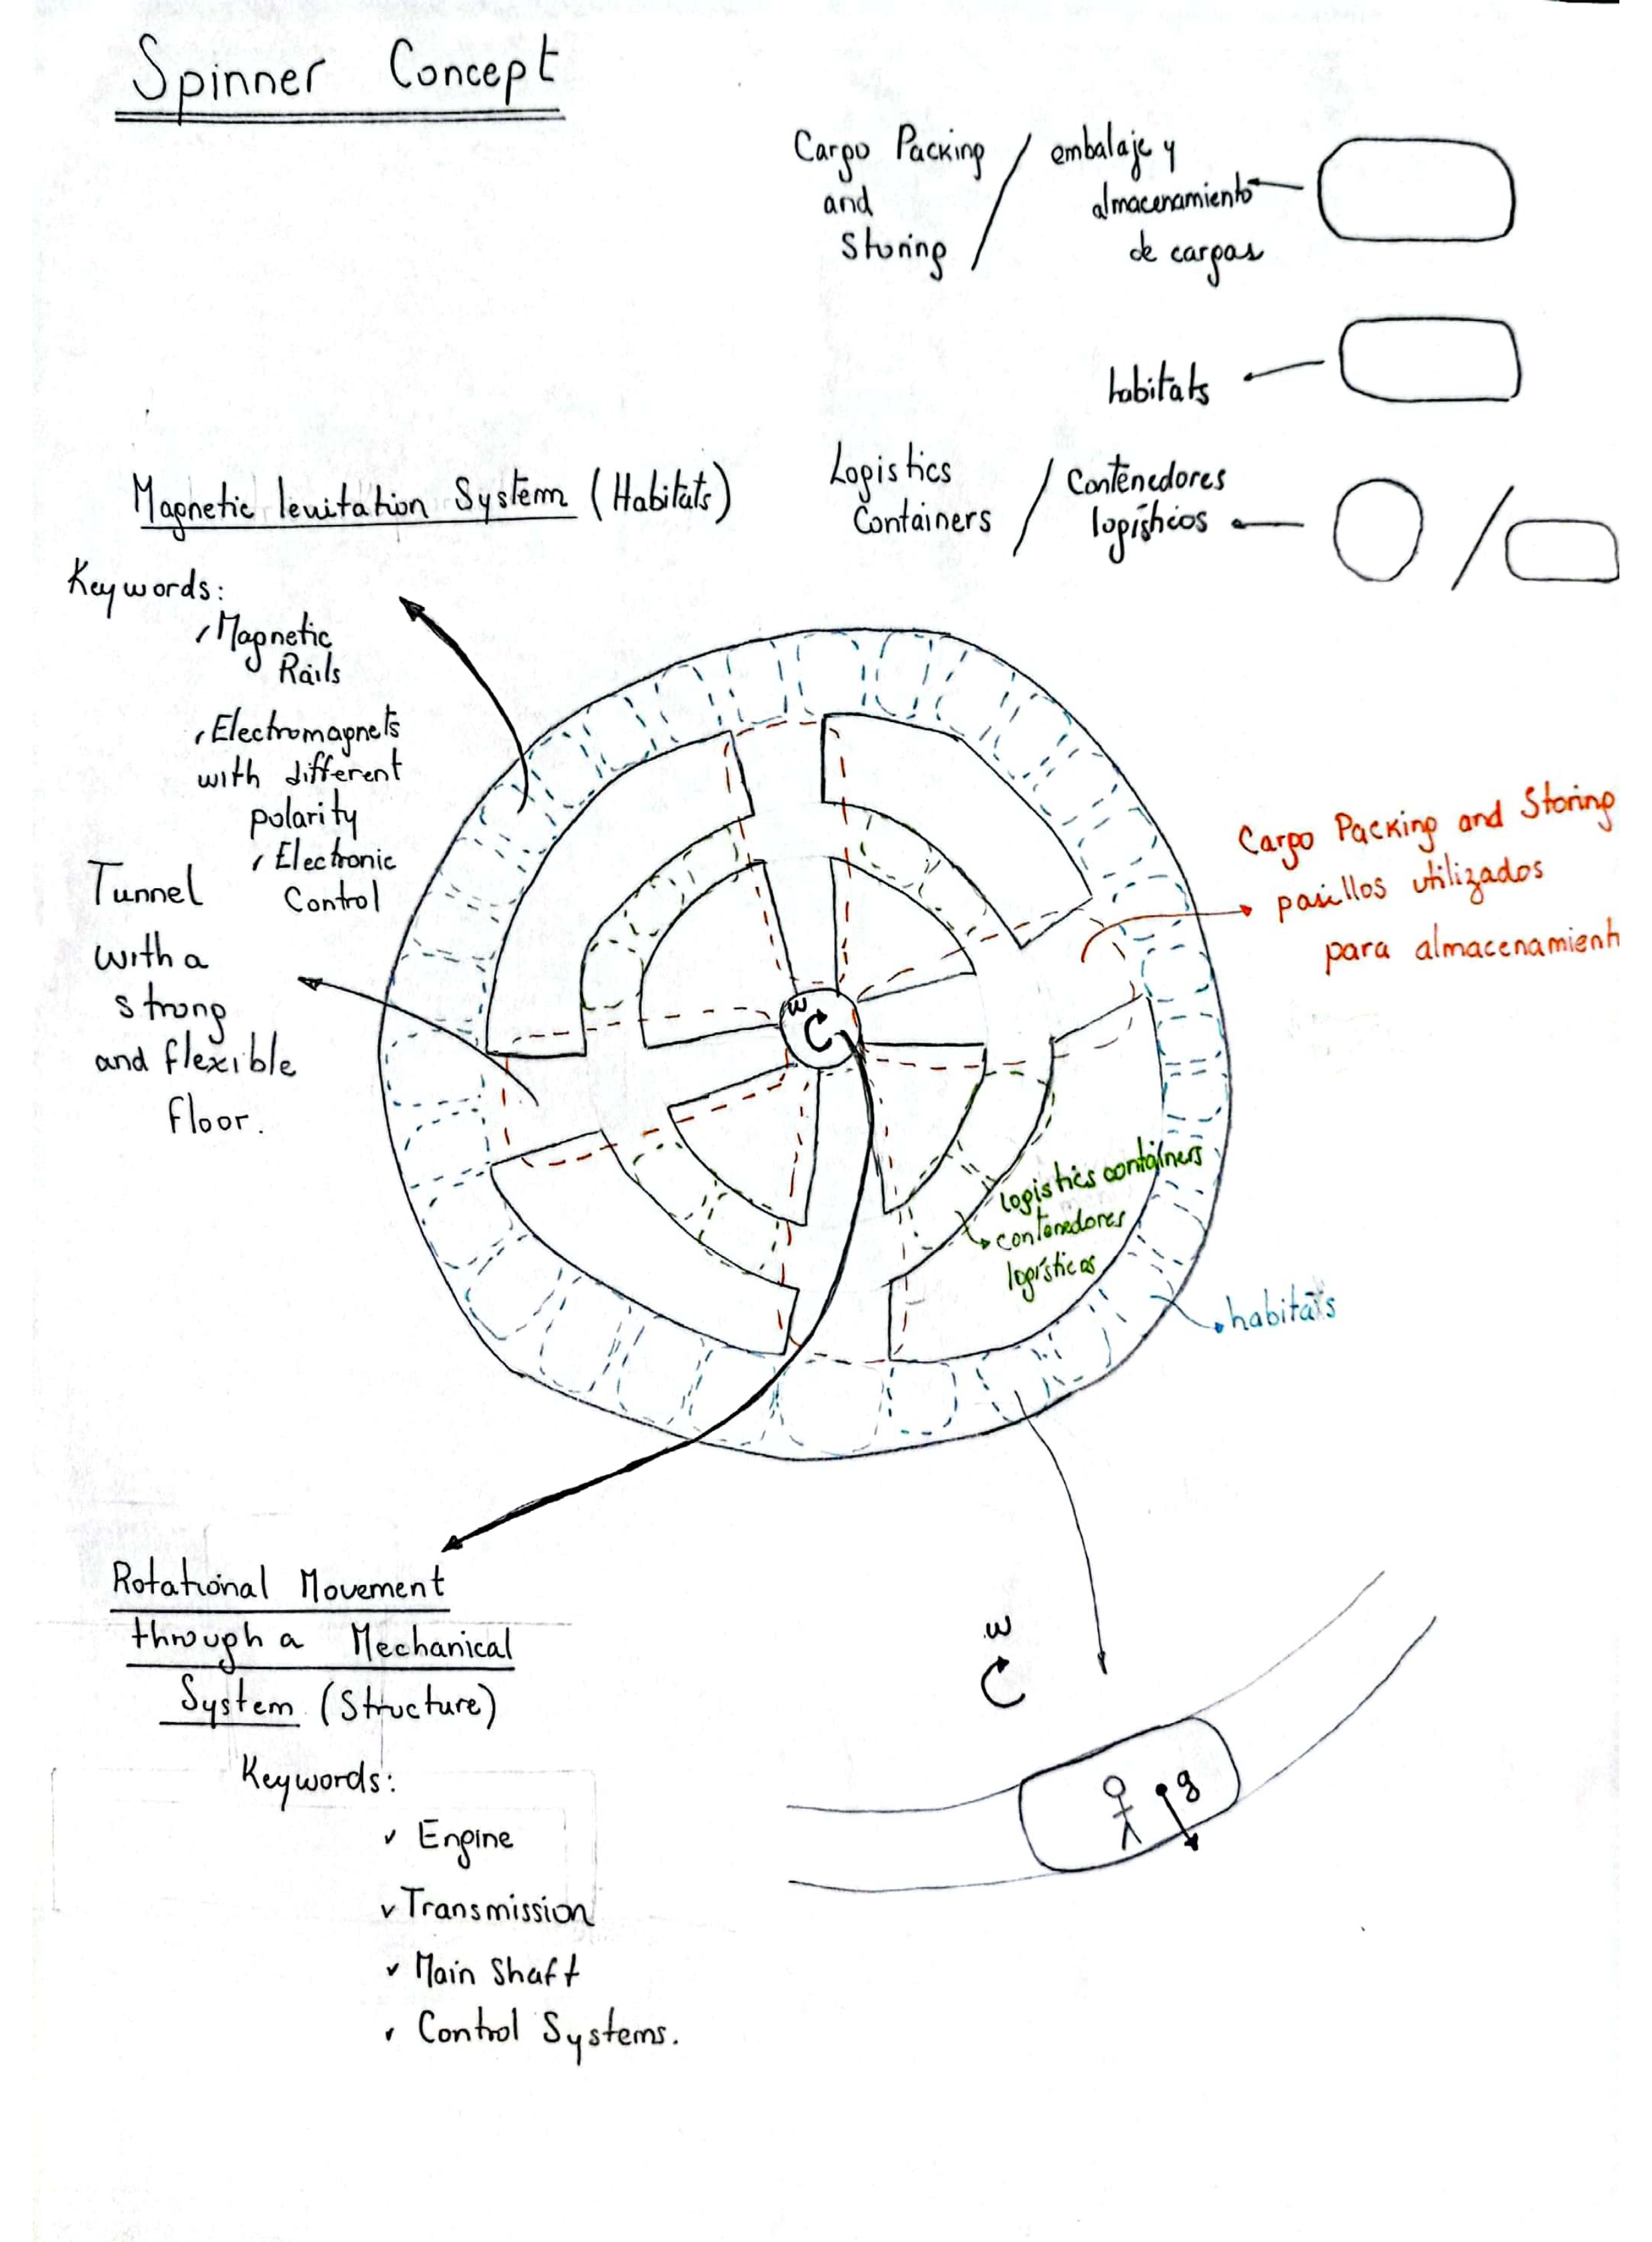 Spinner Concept
Cargo Packing
and
Storing
/ embalaje y
almacenamiento
de cargas
habitats
Logistics
Containers
/ Contenedores
logísticos
/
Magnetic levitation System (Habitats)
Keywords:
✓ Magnetic
Rails
✓ Electromagnets
with different
polarity
✓ Electronic
Control
Tunnel
with a
strong
and flexible
floor.
w
Cargo Packing and Storing
pasillos utilizados
para almacenamient
logistics containers
contenedores
logísticos
habitats
Rotational Movement
through a Mechanical
System (Structure)
Keywords:
✓ Engine
✓ Transmission
✓ Main Shaft
✓ Control Systems.
w
g